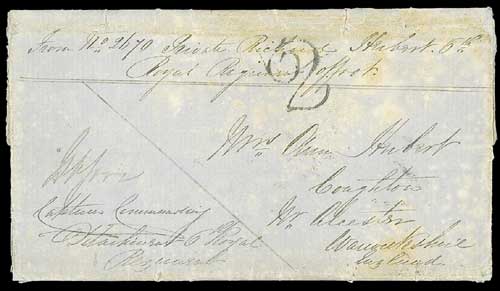 From No 2670 Private Richard Hubert 6th
Royal Regiment of foot
2
Mrs Ann Hubert
Coughton
Nr Alcester
Warwickshire
England
Captain Commanding
Detachment 6 Royal
Regiment